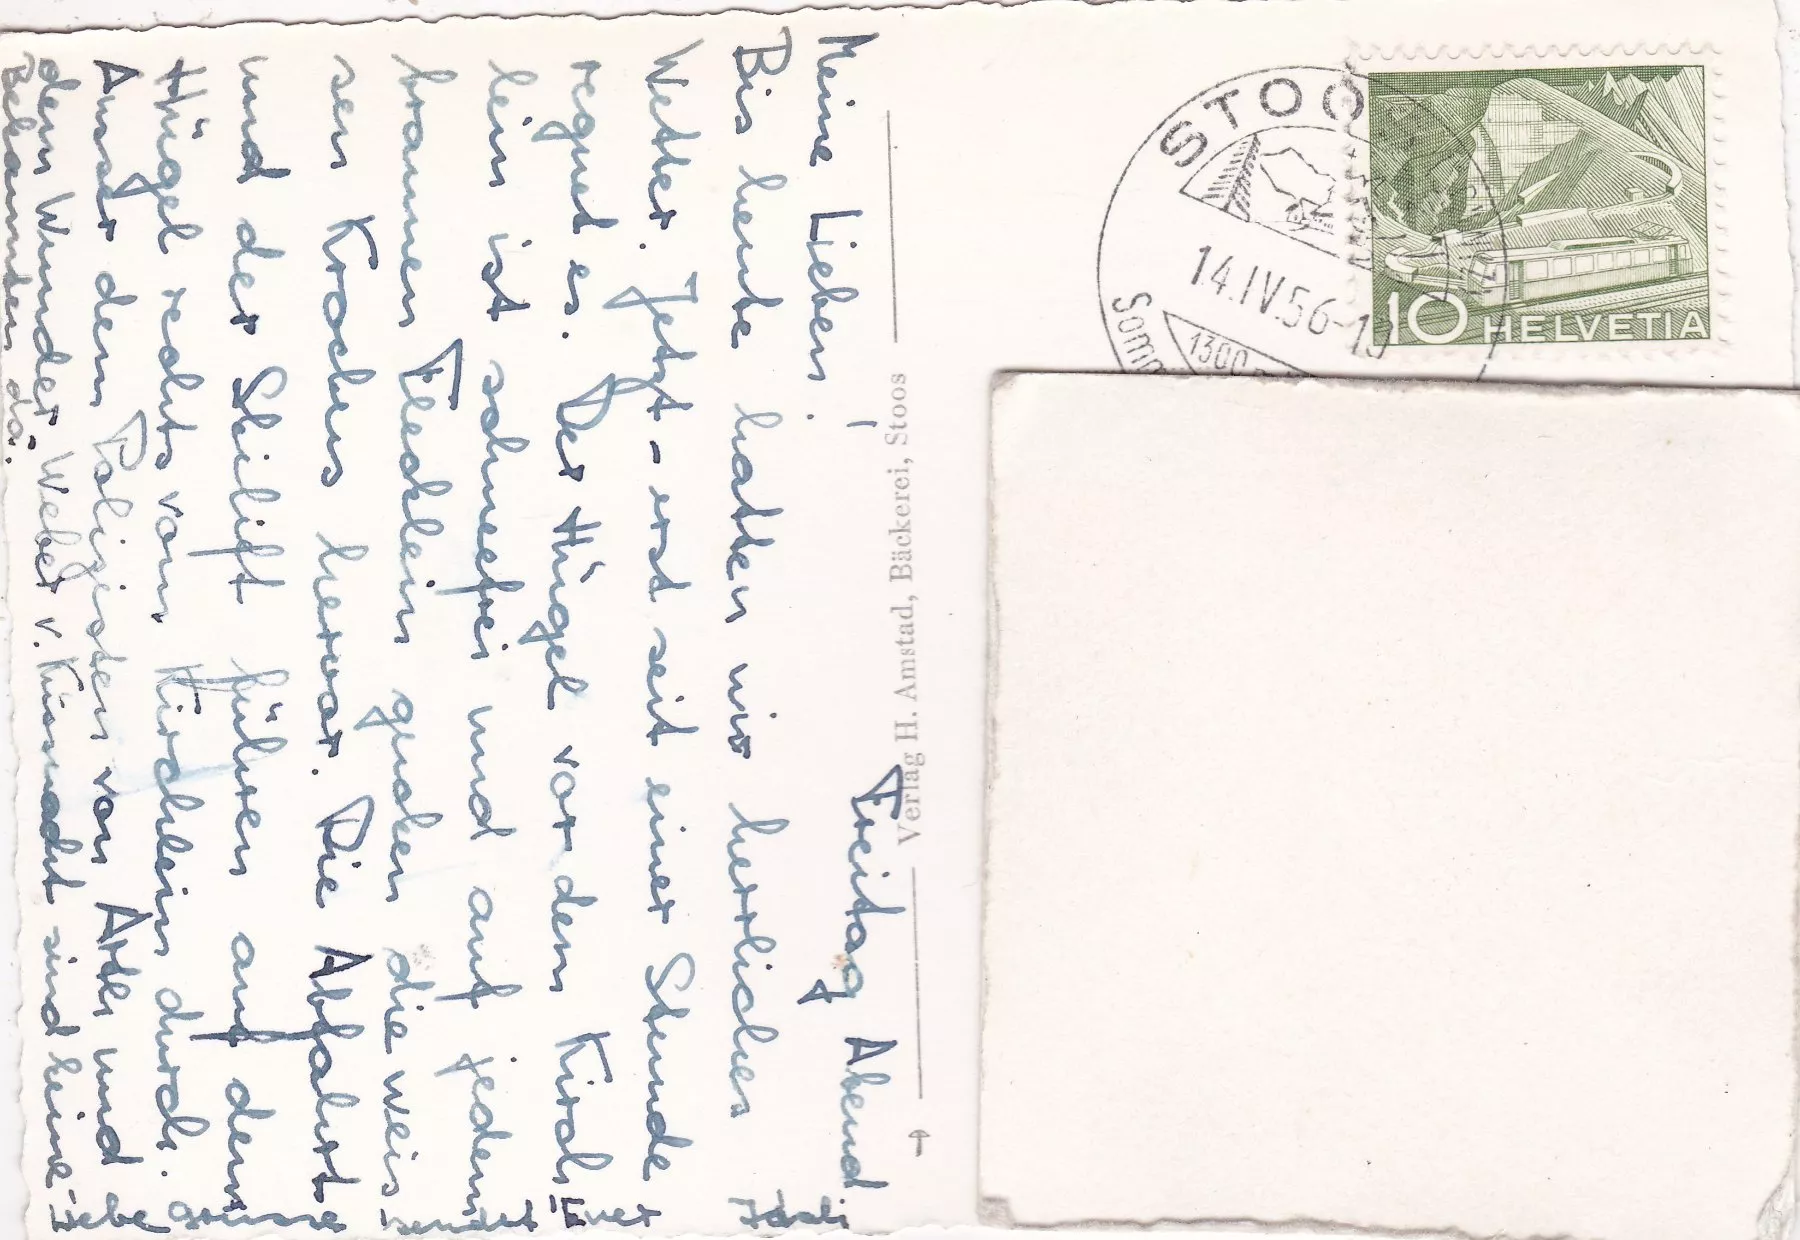 Freitag Abend
Meine Lieben!
Bis heute hatten wir herrliches
Wetter. Jetzt - erst seit einer Stunde
regnet es. Der Hügel vor dem Kirch-
lein ist schneefrei und auf jedem
braunen Flecklein gucken die weis-
sen Krokus hervor. Die Abfahrt
und der Skilift führen auf dem
Hügel rechts vom Kirchlein durch.
Ausser dem Polizisten von Arth und
dem Wunderweber v. Küssnacht sind keine
Bekannten da.
Liebe Grüsse sendet Euer
Verlag H. Amstad, Bäckerei, Stoos
STOO
14.IV.56-1
1300
Somm
10 HELVETIA